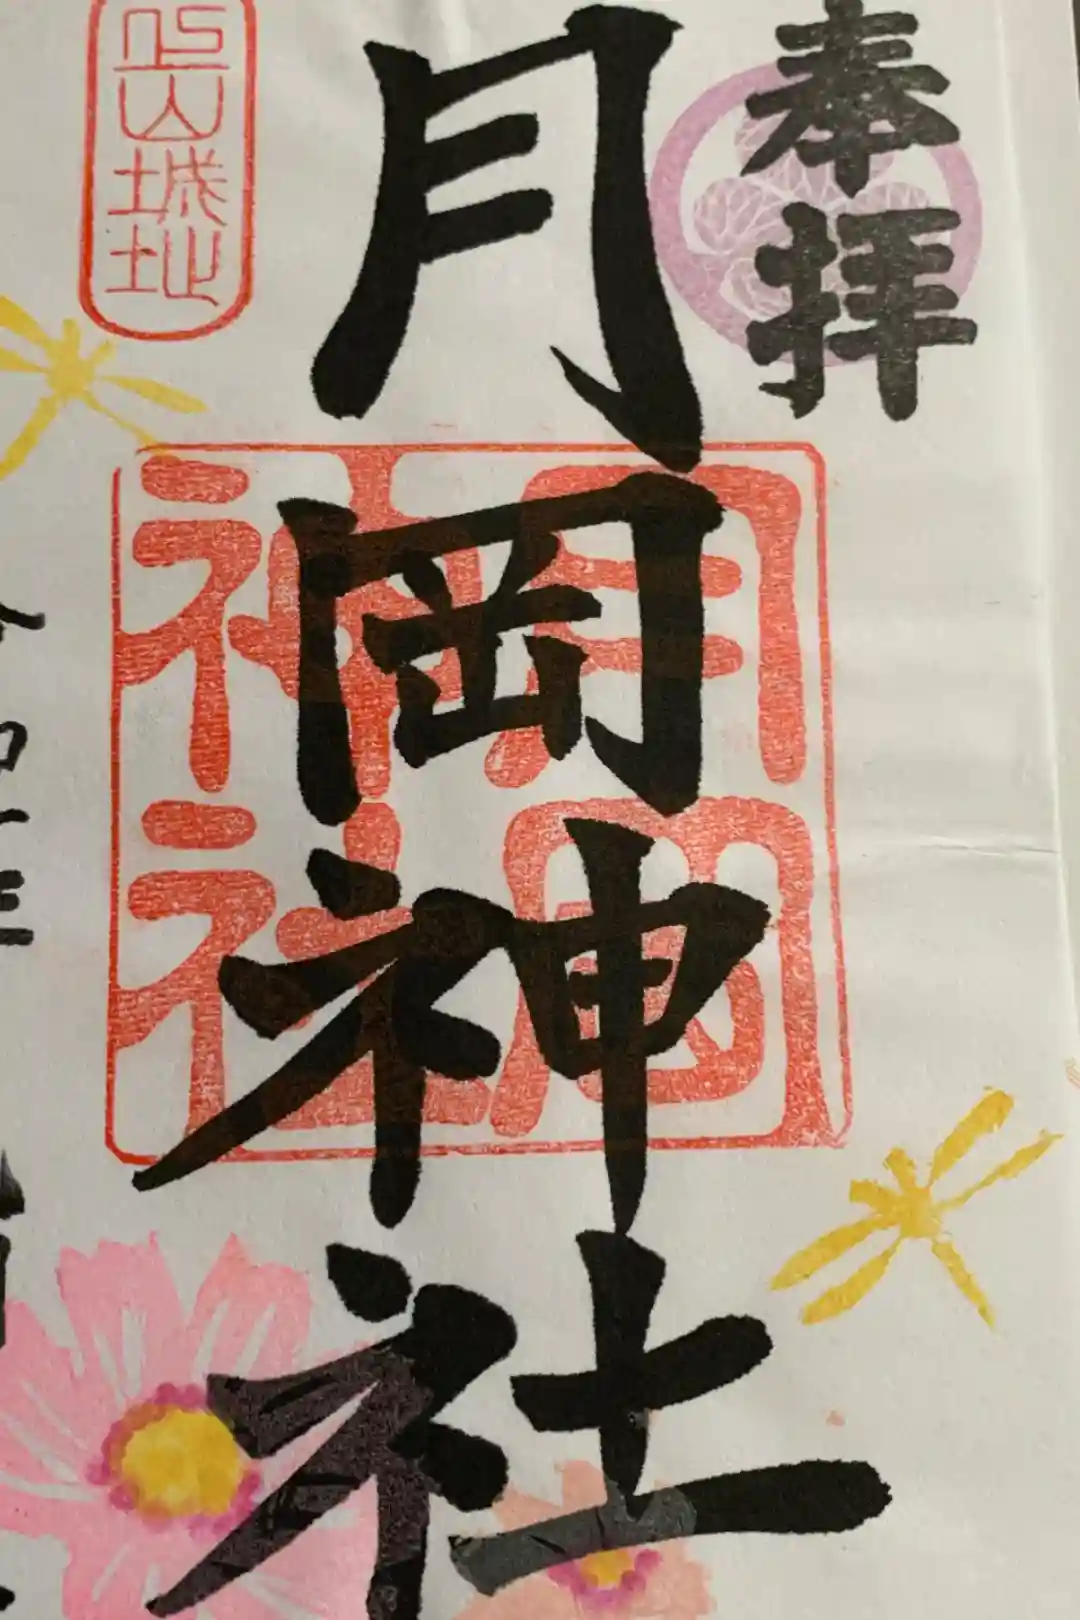 奉拝
月岡神社
月岡
神社
山城地
令和